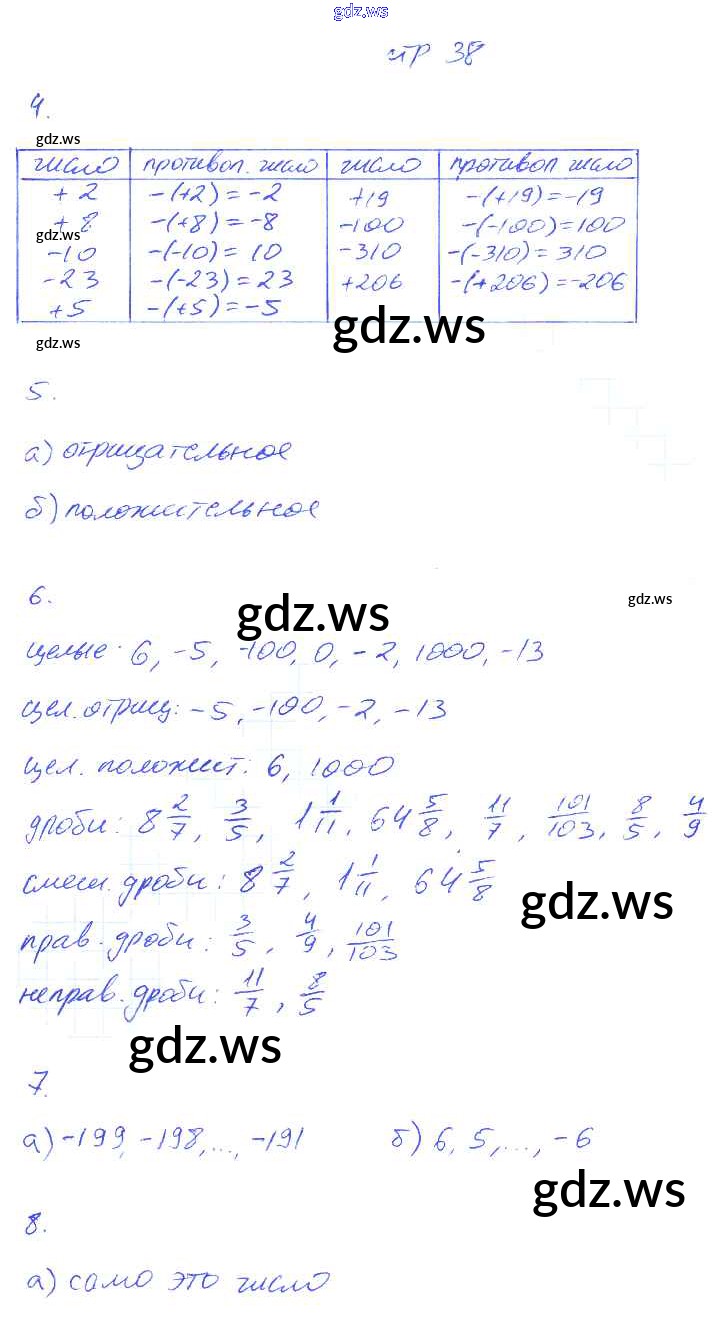 gdz.ws
стр 38
4.
gdz.ws
число противоп. число число противоп число
+2 -(+2)=-2 +19 -(+19)=-19
+8 -(+8)=-8 -100 -(-100)=100
gdz.ws
-10 -(-10)=10 -310 -(-310)=310
-23 -(-23)=23 +206 -(+206)=-206
+5 -(+5)=-5
gdz.ws
gdz.ws
5.
а) отрицательное
б) положительное
6.
gdz.ws
gdz.ws
целые: 6, -5, -100, 0, -2, 1000, -13
цел. отриц: -5, -100, -2, -13
цел. положит: 6, 1000
дроби: 8 2/7, 3/5, 1 1/11, 64 5/8, 11/7, 101/103, 8/5, 4/9
смеш. дроби: 8 2/7, 1 1/11, 64 5/8
gdz.ws
прав. дроби: 3/5, 4/9, 101/103
неправ. дроби: 11/7, 8/5
gdz.ws
7.
а) -199, -198, ..., -191 б) 6, 5, ..., -6
gdz.ws
8.
а) само это число